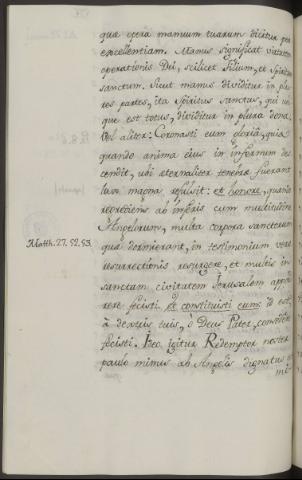 quia opera manuum tuarum dicitur per
excellentiam. Manus significat virtutem
operationis Dei, scilicet Filium, et Spiritum
sanctum. Sicut manus dividitur in plu
res partes, ita Spiritus sanctus, qui un
que est totus, dividitur in plura dona.
Vel aliter: Coronasti eum gloria, quia
quando anima eius in infernum des
cendit, ubi eternaliter tenebræ fuerant
lux magna refulsit: et honore, quando
regrediens ab inferis cum multitudine
Angelorum, multa corpora sanctorum
Matth. 27. 52. 53.
qua dormierant, in testimonium veræ
resurrectionis resurgere, et multis in
sanctam civitatem Jerusalem appa
rere fecisti. Et constituisti eum: id est
à dextris tuis, ò Deus Pater,
fecisti. Hec igitur Redemptor noster
paulo minus ab Angelis dignatus
mi-